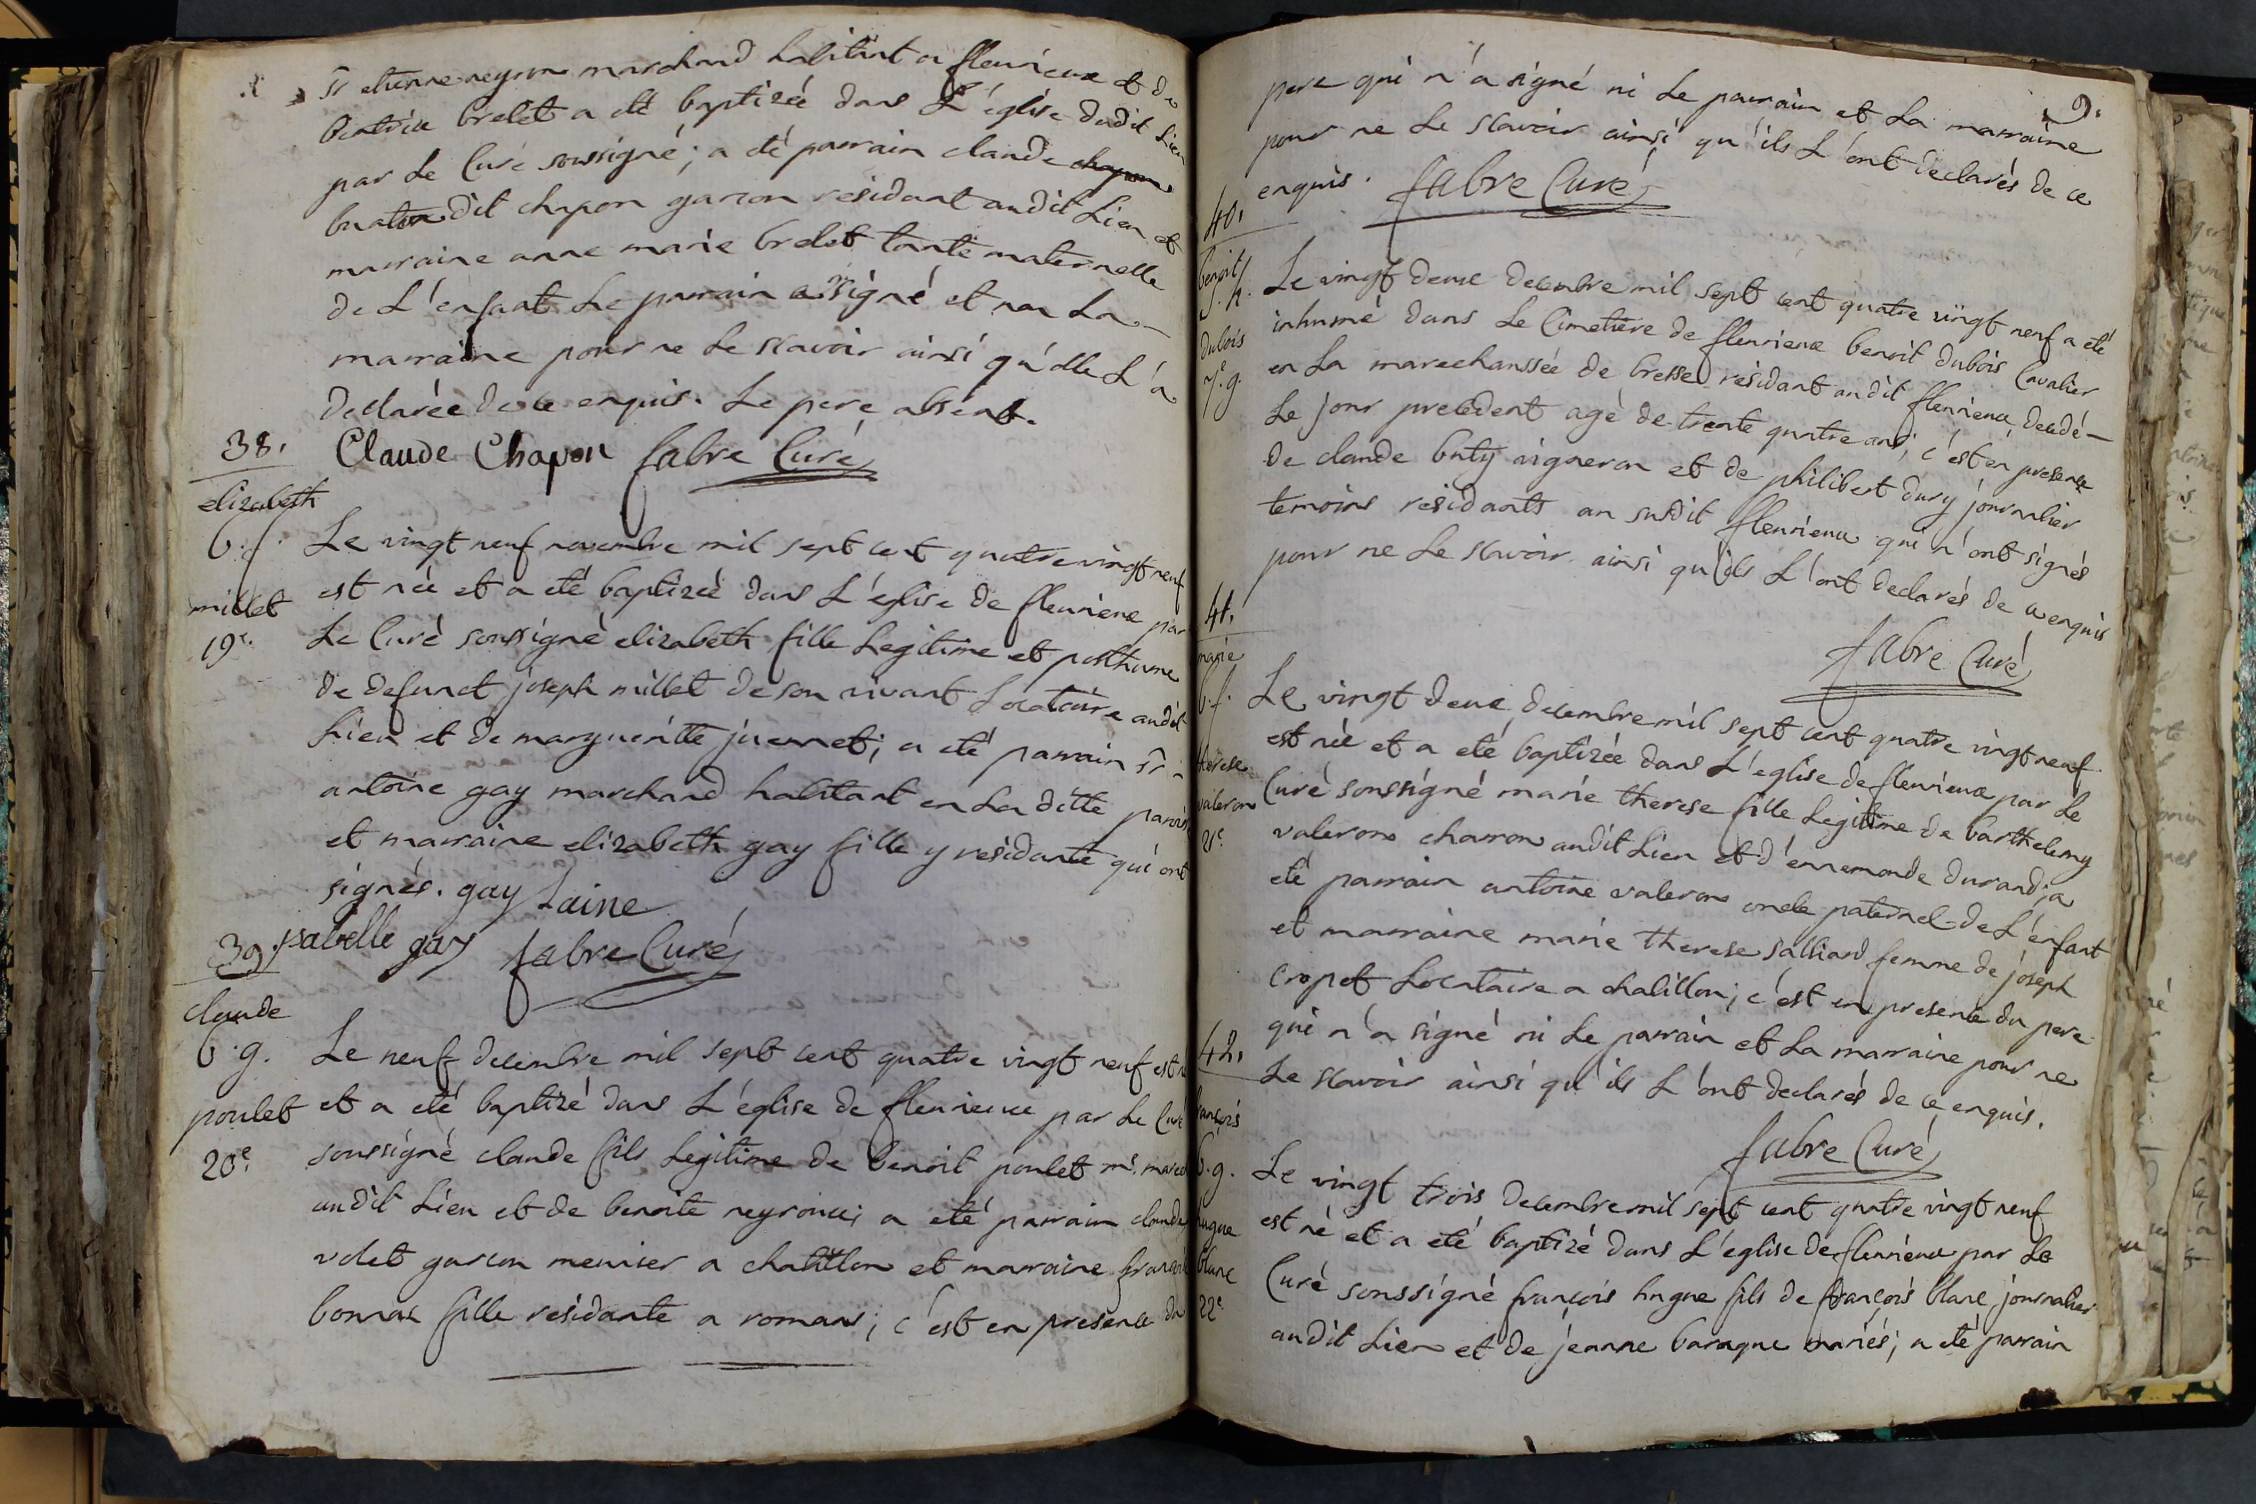 sr etienne neyron marchand habitant a fleurieux et de
beatrice brelet a eté baptizée dans L'église dudit Lieu
par Le Curé soussigné; a eté parrain claude chapon
buaton dit chapon garçon residant audit Lieu et
marraine anne marie brelet tante maternelle
de L'enfant Le parrain a signé et non La
marraine pour ne Le scavoir ainsi qu'elle L'a
declarée de ce enquis. Le pere absent.
38. Claude Chapon fabre Curé
elizabeth
b. f. Le vingt neuf novembre mil sept cent quatre vingt neuf
est née et a eté baptizée dans L'église de fleurieux par
millet Le Curé soussigné elizabeth fille Legitime et posthume
19e. de defunct joseph millet de son vivant Locataire audit
Lieu et de margueritte juennet; a eté parrain sr
antoine gay marchand habitant en La ditte paroisse
et marraine elizabeth gay fille y residante qui ont
signés. gay Laine
39. isabelle gay fabre Curé
claude
b. g. Le neuf decembre mil sept cent quatre vingt neuf est né
poulet et a eté baptizé dans L'église de fleurieux par Le Curé
20e. soussigné claude fils Legitime de benoit poulet me. marec
audit Lieu et de benoite neyronce; a eté parrain claude
volet garçon meunier a chatillon et marraine
bonnar fille residante a romans; c'est en presence du
9.
pere qui n'a signé ni Le parrain et La marraine
pour ne Le scavoir ainsi qu'ils L'ont declarés de ce
enquis. fabre Curé
40.
benoit
s. h. Le vingt deux decembre mil sept cent quatre vingt neuf a eté
dubois inhumé dans Le Cimetière de fleurieux benoit dubois Cavalier
7e. g. en La marechaussée de bresse residant audit fleurieux decedé
Le jour precedent agé de trente quatre ans; c'est en presence
de claude buty vigneron et de philibert dury journalier
temoins residants au susdit fleurieux qui n'ont signés
pour ne Le scavoir ainsi qu'ils L'ont declarés de ce enquis
41. fabre Curé
marie
b. f. Le vingt deux decembre mil sept cent quatre vingt neuf
therese est née et a eté baptizée dans L'eglise de fleurieux par Le
valeron Curé soussigné marie therese fille Legitime de barthelemy
21e. valeron charron audit Lieu et d'ennemonde durand; a
eté parrain antoine valeron oncle paternel de L'enfant
et marraine marie therese salliard femme de joseph
cropet Locataire a chatillon; c'est en presence du pere
qui n'a signé ni Le parrain et La marraine pour ne
42. Le scavoir ainsi qu'ils L'ont declarés de ce enquis.
françois fabre Curé
b. g. Le vingt trois decembre mil sept cent quatre vingt neuf
hugue est né et a eté baptizé dans L'eglise de fleurieux par Le
blanc Curé soussigné françois hugue fils de françois blanc journalier
22e. audit Lieu et de jeanne baraque mariés; a eté parrain